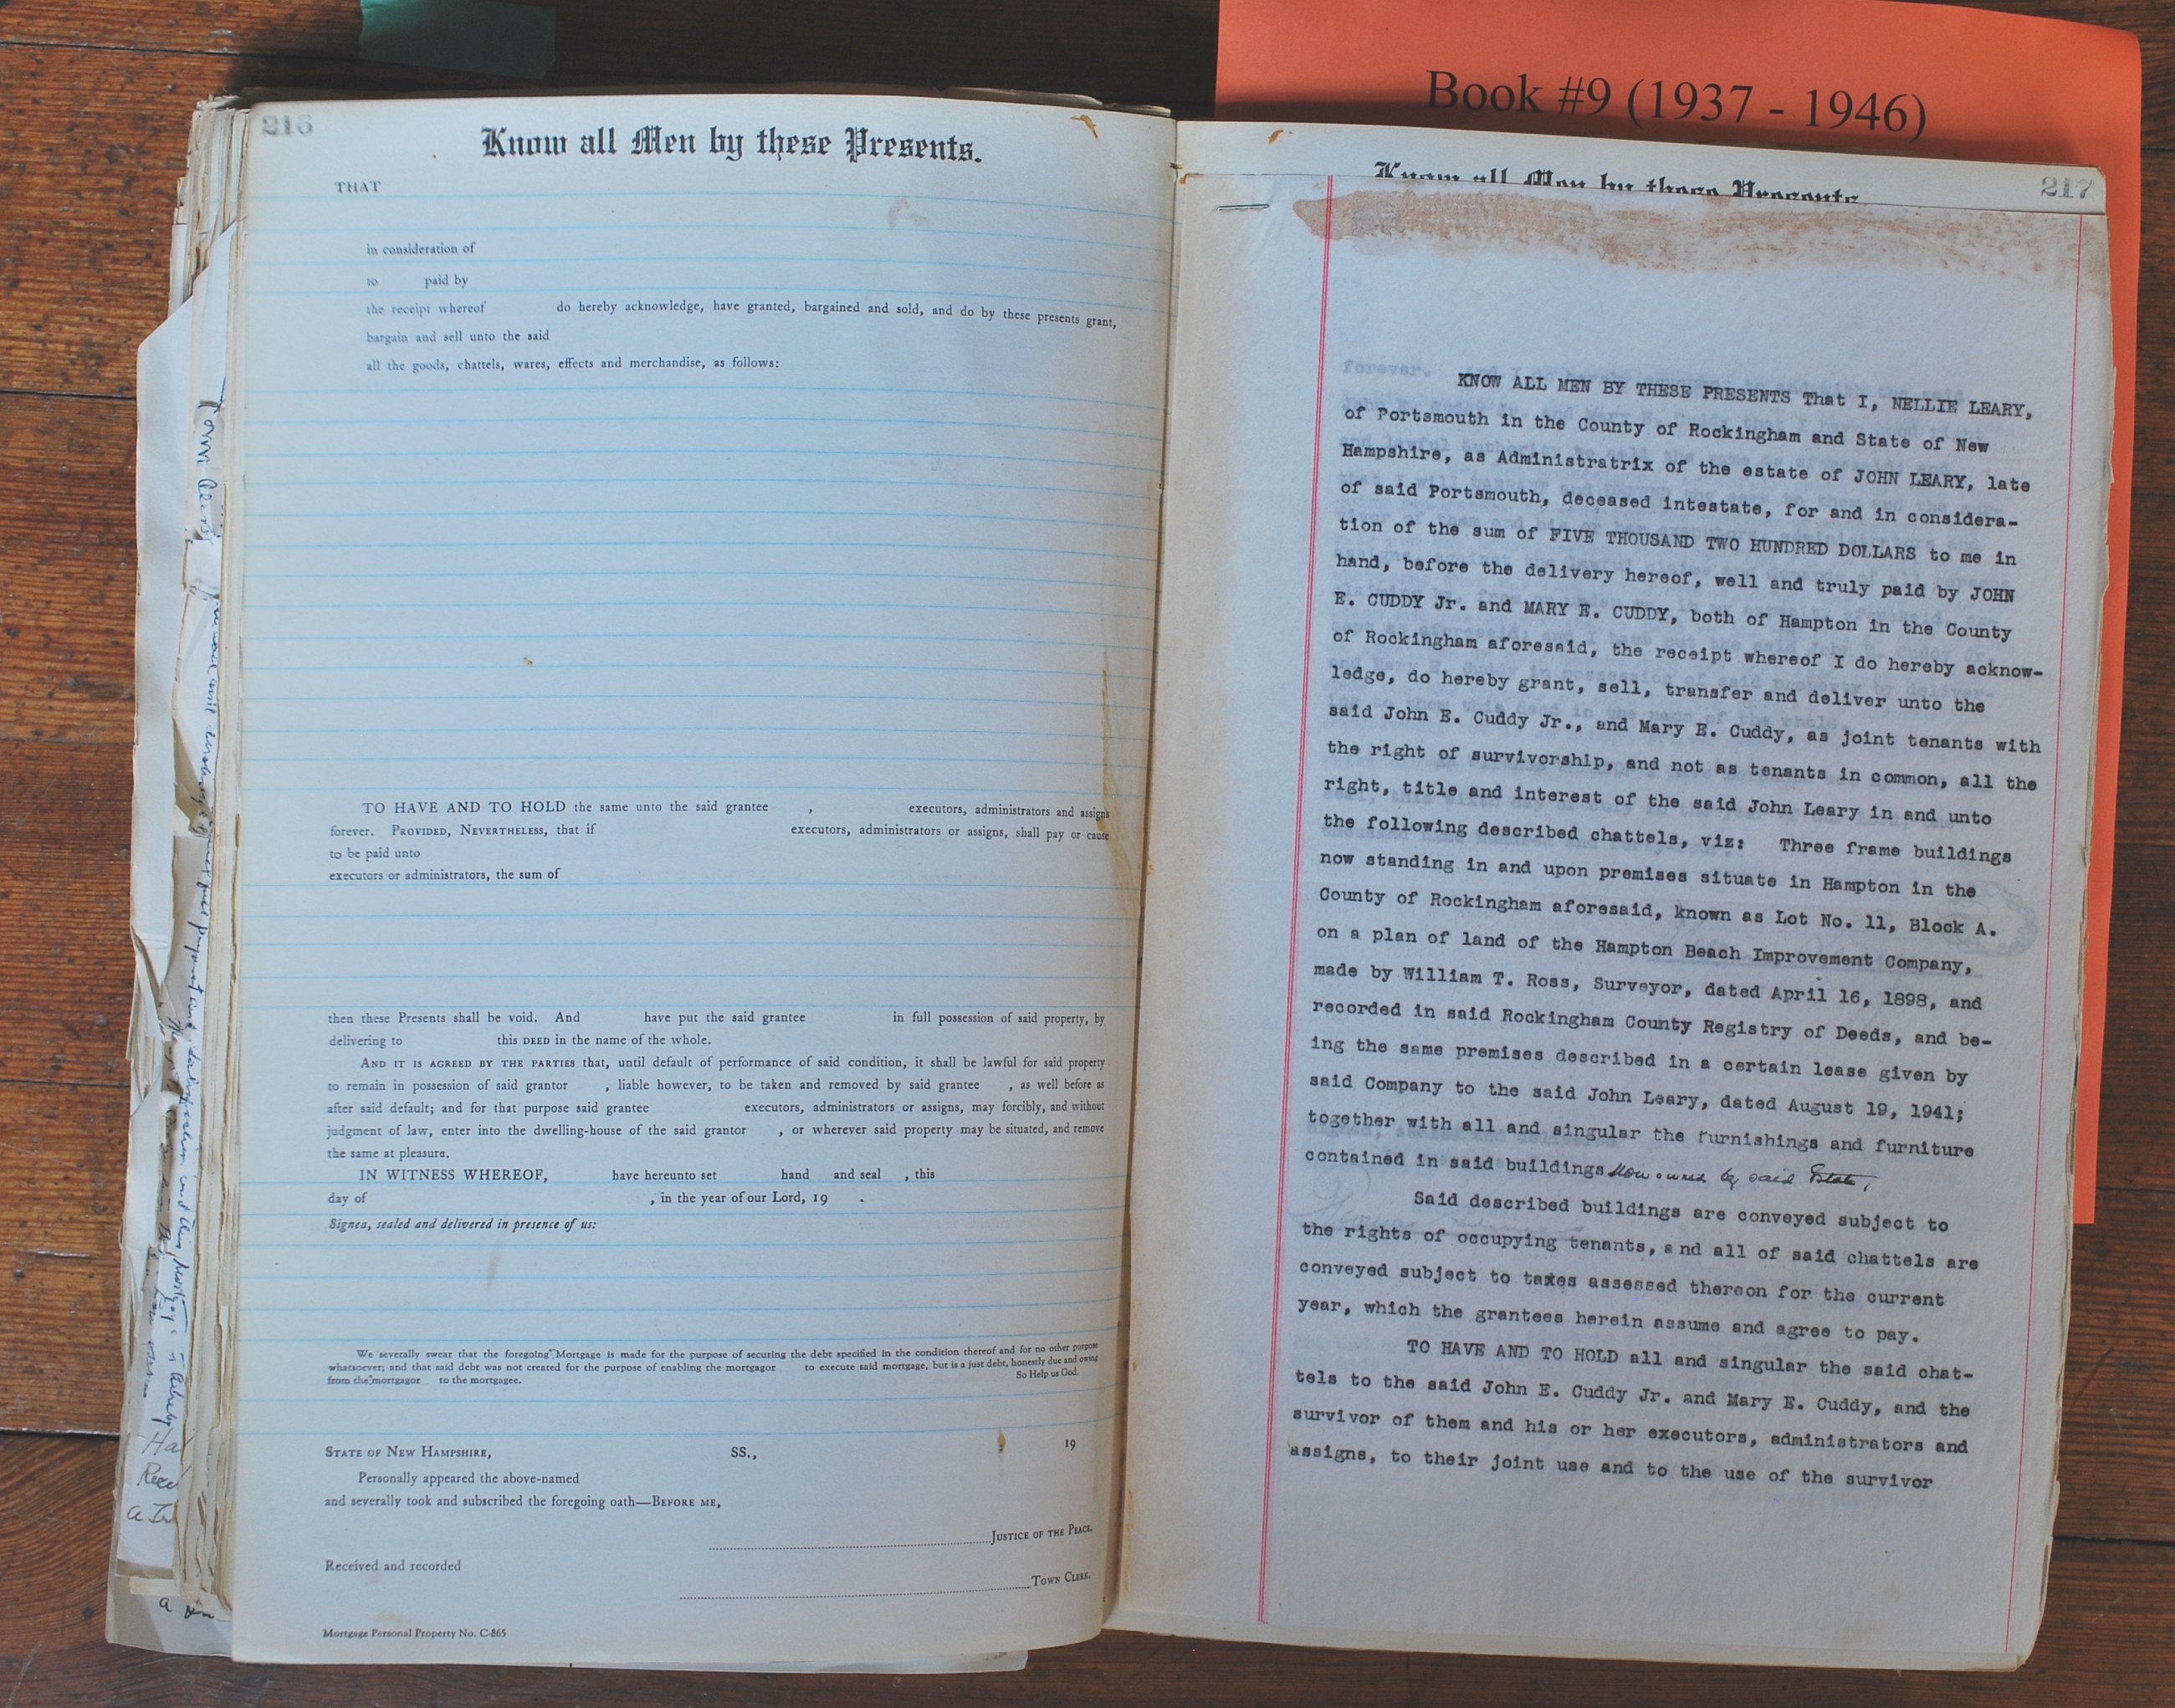 Book #9 (1937 - 1946)
216
Know all Men by these Presents.
THAT
in consideration of
to paid by
the receipt whereof do hereby acknowledge, have granted, bargained and sold, and do by these presents grant,
bargain and sell unto the said
all the goods, chattels, wares, effects and merchandise, as follows:
TO HAVE AND TO HOLD the same unto the said grantee , executors, administrators and assigns
forever. PROVIDED, NEVERTHELESS, that if executors, administrators or assigns, shall pay or cause
to be paid unto
executors or administrators, the sum of
then these Presents shall be void. And have put the said grantee in full possession of said property, by
delivering to this DEED in the name of the whole.
AND IT IS AGREED BY THE PARTIES that, until default of performance of said condition, it shall be lawful for said property
to remain in possession of said grantor , liable however, to be taken and removed by said grantee , as well before as
after said default; and for that purpose said grantee executors, administrators or assigns, may forcibly, and without
judgment of law, enter into the dwelling-house of the said grantor , or wherever said property may be situated, and remove
the same at pleasure.
IN WITNESS WHEREOF, have hereunto set hand and seal , this
day of , in the year of our Lord, 19 .
Signea, sealed and delivered in presence of us:
We severally swear that the foregoing Mortgage is made for the purpose of securing the debt specified in the condition thereof and for no other purpose
whatsoever; and that said debt was not created for the purpose of enabling the mortgagor to execute said mortgage, but is a just debt, honestly due and owing
from the mortgagor to the mortgagee. So Help us God.
STATE OF NEW HAMPSHIRE, SS., 19
Personally appeared the above-named
and severally took and subscribed the foregoing oath—BEFORE ME,
JUSTICE OF THE PEACE.
Received and recorded
TOWN CLERK.
Mortgage Personal Property No. C-865
Know all Men by these Presents
217
KNOW ALL MEN BY THESE PRESENTS That I, NELLIE LEARY,
of Portsmouth in the County of Rockingham and State of New
Hampshire, as Administratrix of the estate of JOHN LEARY, late
of said Portsmouth, deceased intestate, for and in considera-
tion of the sum of FIVE THOUSAND TWO HUNDRED DOLLARS to me in
hand, before the delivery hereof, well and truly paid by JOHN
E. CUDDY Jr. and MARY E. CUDDY, both of Hampton in the County
of Rockingham aforesaid, the receipt whereof I do hereby acknow-
ledge, do hereby grant, sell, transfer and deliver unto the
said John E. Cuddy Jr., and Mary E. Cuddy, as joint tenants with
the right of survivorship, and not as tenants in common, all the
right, title and interest of the said John Leary in and unto
the following described chattels, viz: Three frame buildings
now standing in and upon premises situate in Hampton in the
County of Rockingham aforesaid, known as Lot No. 11, Block A.
on a plan of land of the Hampton Beach Improvement Company,
made by William T. Ross, Surveyor, dated April 16, 1898, and
recorded in said Rockingham County Registry of Deeds, and be-
ing the same premises described in a certain lease given by
said Company to the said John Leary, dated August 19, 1941;
together with all and singular the furnishings and furniture
contained in said buildings now owned by said Estate,
Said described buildings are conveyed subject to
the rights of occupying tenants, and all of said chattels are
conveyed subject to taxes assessed thereon for the current
year, which the grantees herein assume and agree to pay.
TO HAVE AND TO HOLD all and singular the said chat-
tels to the said John E. Cuddy Jr. and Mary E. Cuddy, and the
survivor of them and his or her executors, administrators and
assigns, to their joint use and to the use of the survivor